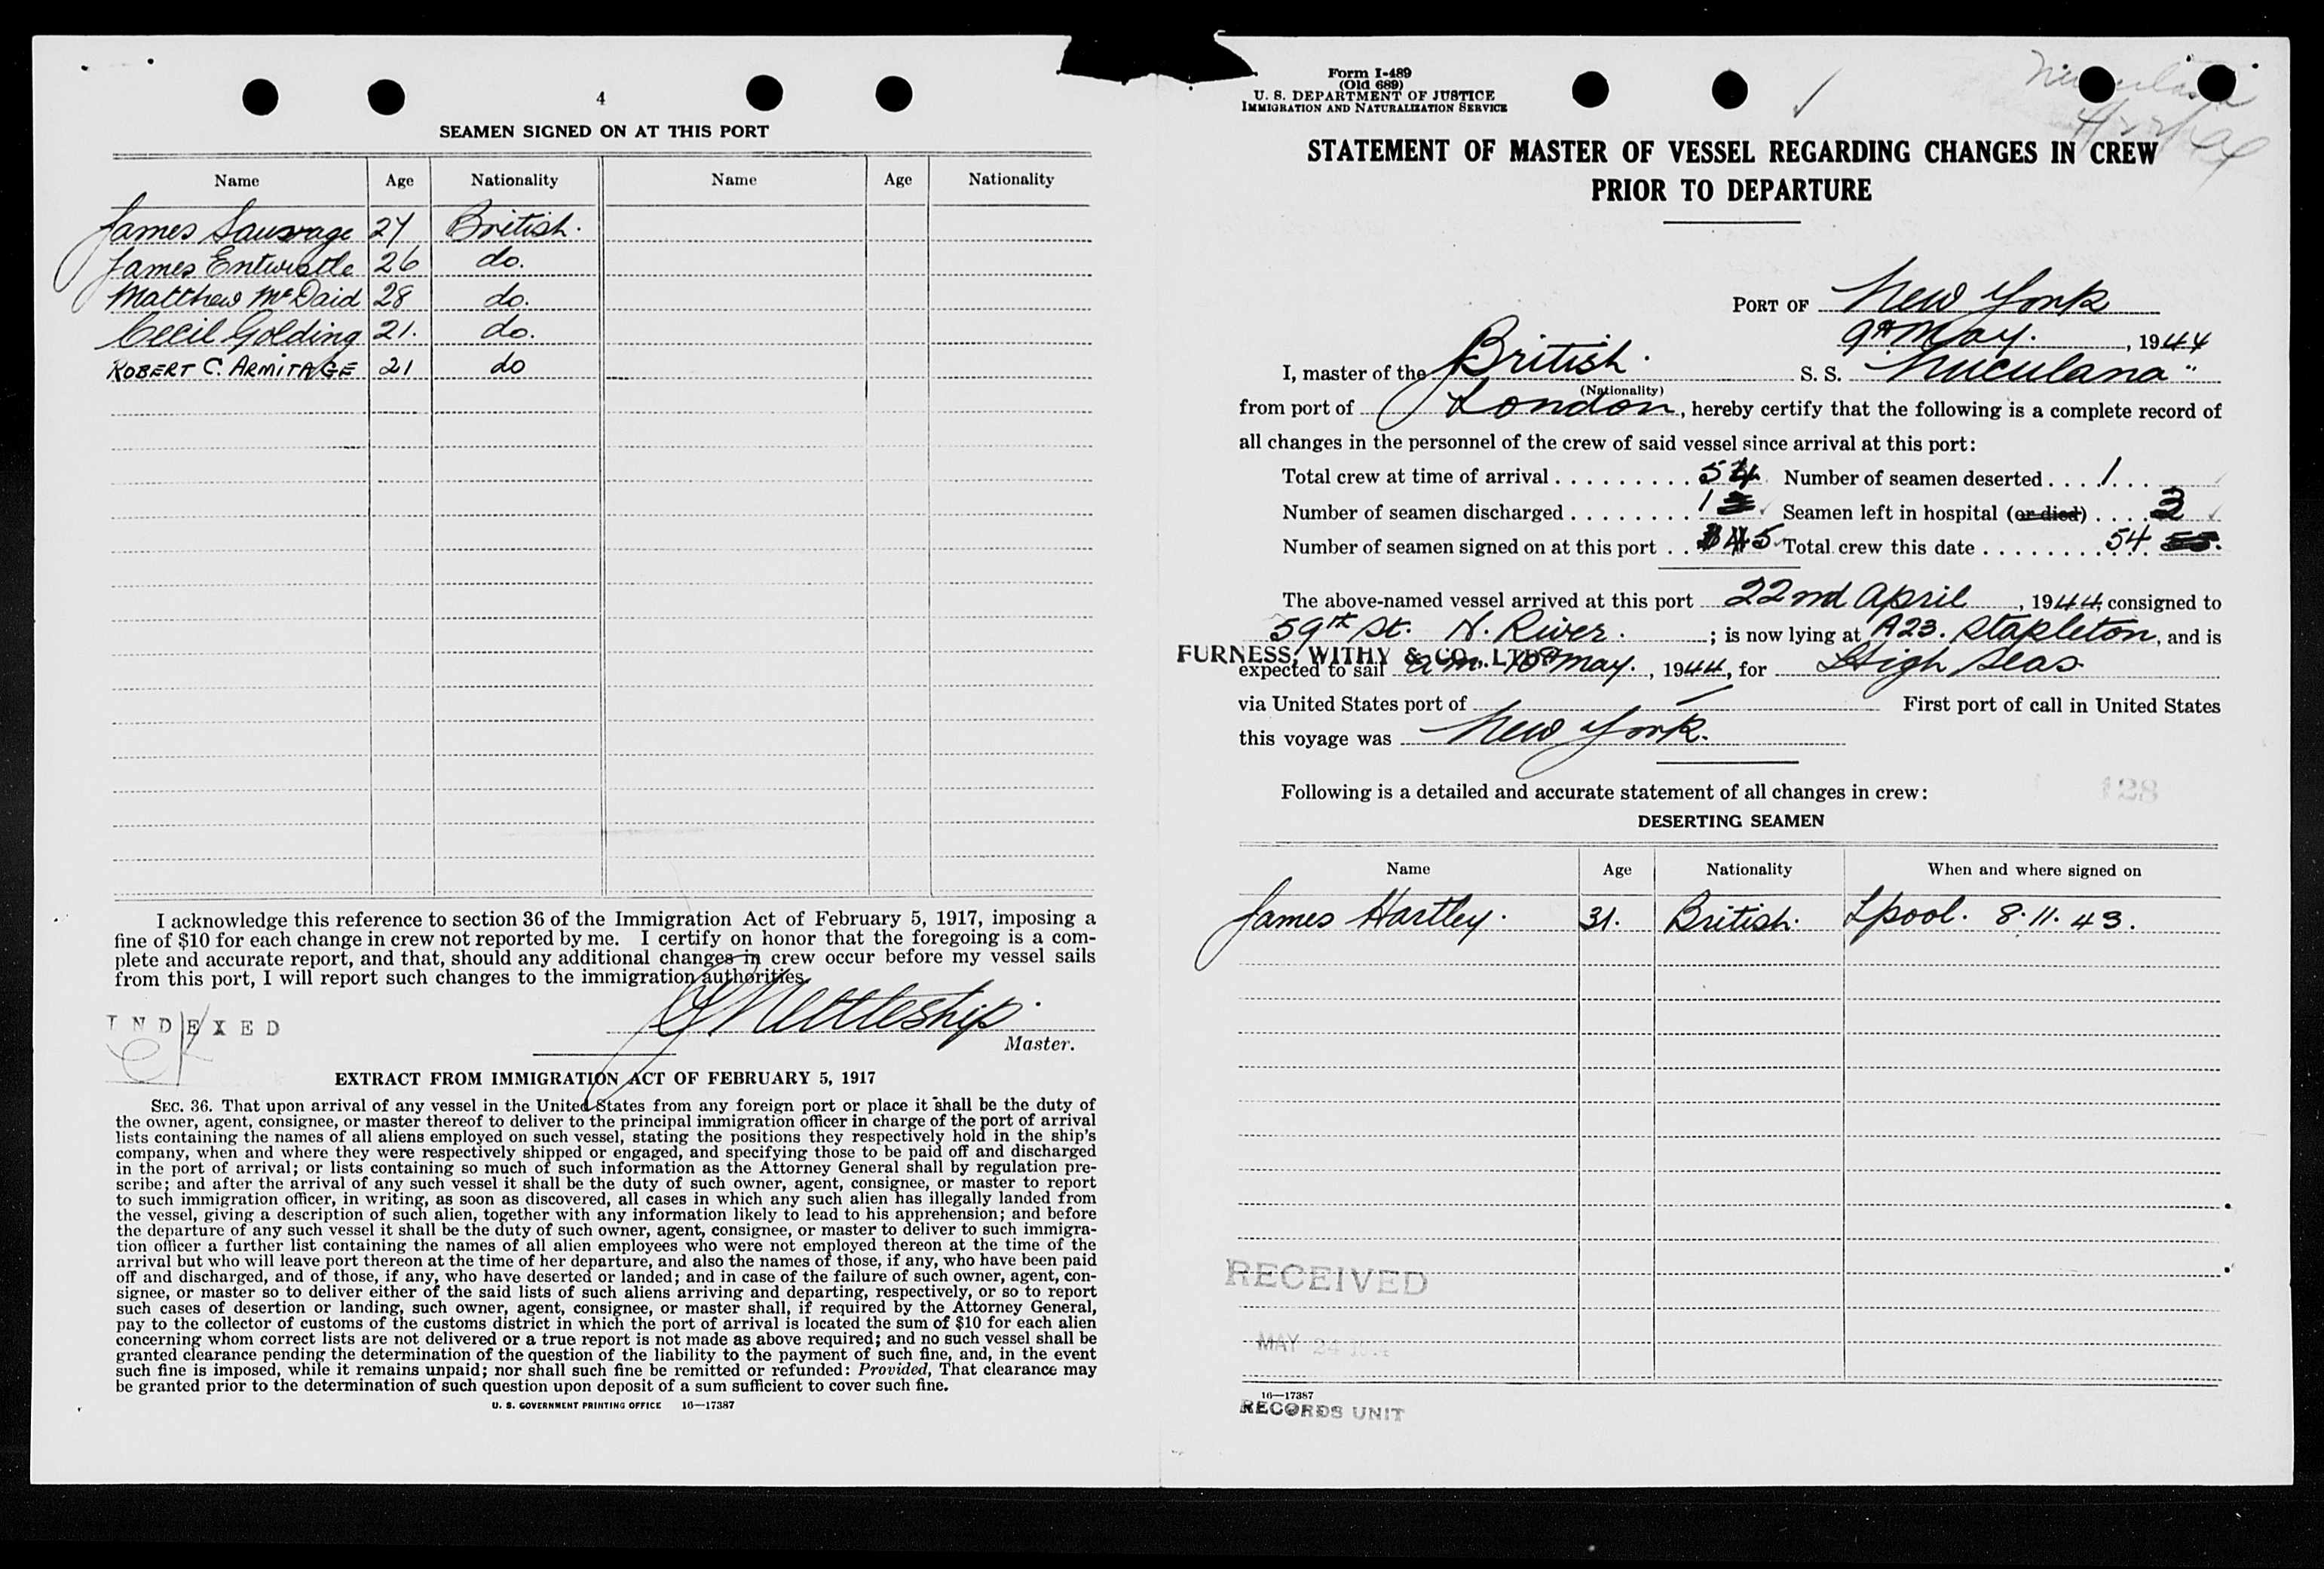 4
SEAMEN SIGNED ON AT THIS PORT
Name Age Nationality Name Age Nationality
James Sauvage 27 British.
James Entwistle 26 do.
Matthew McDaid 28 do.
Cecil Golding 21. do.
ROBERT C. ARMITAGE 21 do
I acknowledge this reference to section 36 of the Immigration Act of February 5, 1917, imposing a
fine of $10 for each change in crew not reported by me. I certify on honor that the foregoing is a com-
plete and accurate report, and that, should any additional changes in crew occur before my vessel sails
from this port, I will report such changes to the immigration authorities.
INDEXED
Nettleship
Master.
EXTRACT FROM IMMIGRATION ACT OF FEBRUARY 5, 1917
SEC. 36. That upon arrival of any vessel in the United States from any foreign port or place it shall be the duty of
the owner, agent, consignee, or master thereof to deliver to the principal immigration officer in charge of the port of arrival
lists containing the names of all aliens employed on such vessel, stating the positions they respectively hold in the ship's
company, when and where they were respectively shipped or engaged, and specifying those to be paid off and discharged
in the port of arrival; or lists containing so much of such information as the Attorney General shall by regulation pre-
scribe; and after the arrival of any such vessel it shall be the duty of such owner, agent, consignee, or master to report
to such immigration officer, in writing, as soon as discovered, all cases in which any such alien has illegally landed from
the vessel, giving a description of such alien, together with any information likely to lead to his apprehension; and before
the departure of any such vessel it shall be the duty of such owner, agent, consignee, or master to deliver to such immigra-
tion officer a further list containing the names of all alien employees who were not employed thereon at the time of the
arrival but who will leave port thereon at the time of her departure, and also the names of those, if any, who have been paid
off and discharged, and of those, if any, who have deserted or landed; and in case of the failure of such owner, agent, con-
signee, or master so to deliver either of the said lists of such aliens arriving and departing, respectively, or so to report
such cases of desertion or landing, such owner, agent, consignee, or master shall, if required by the Attorney General,
pay to the collector of customs of the customs district in which the port of arrival is located the sum of $10 for each alien
concerning whom correct lists are not delivered or a true report is not made as above required; and no such vessel shall be
granted clearance pending the determination of the question of the liability to the payment of such fine, and, in the event
such fine is imposed, while it remains unpaid; nor shall such fine be remitted or refunded: Provided, That clearance may
be granted prior to the determination of such question upon deposit of a sum sufficient to cover such fine.
U. S. GOVERNMENT PRINTING OFFICE 16—17387
Form I-489
(Old 689)
U. S. DEPARTMENT OF JUSTICE
IMMIGRATION AND NATURALIZATION SERVICE
STATEMENT OF MASTER OF VESSEL REGARDING CHANGES IN CREW
PRIOR TO DEPARTURE
PORT OF New York
9th May. , 1944
I, master of the British. S. S. Nuculana"
(Nationality)
from port of London, hereby certify that the following is a complete record of
all changes in the personnel of the crew of said vessel since arrival at this port:
Total crew at time of arrival 54 Number of seamen deserted 1
Number of seamen discharged 1 Seamen left in hospital (or died) 3
Number of seamen signed on at this port 5 Total crew this date 54
The above-named vessel arrived at this port 22nd April, 1944, consigned to
59th St. N. River. ; is now lying at A23. Stapleton, and is
FURNESS, WITHY & CO., LTD.
expected to sail a.m. 10th May. , 1944, for High Seas
via United States port of First port of call in United States
this voyage was New York.
Following is a detailed and accurate statement of all changes in crew:
128
DESERTING SEAMEN
Name Age Nationality When and where signed on
James Hartley. 31. British. Lpool. 8.11.43.
RECEIVED
MAY 24
16—17387
RECORDS UNIT